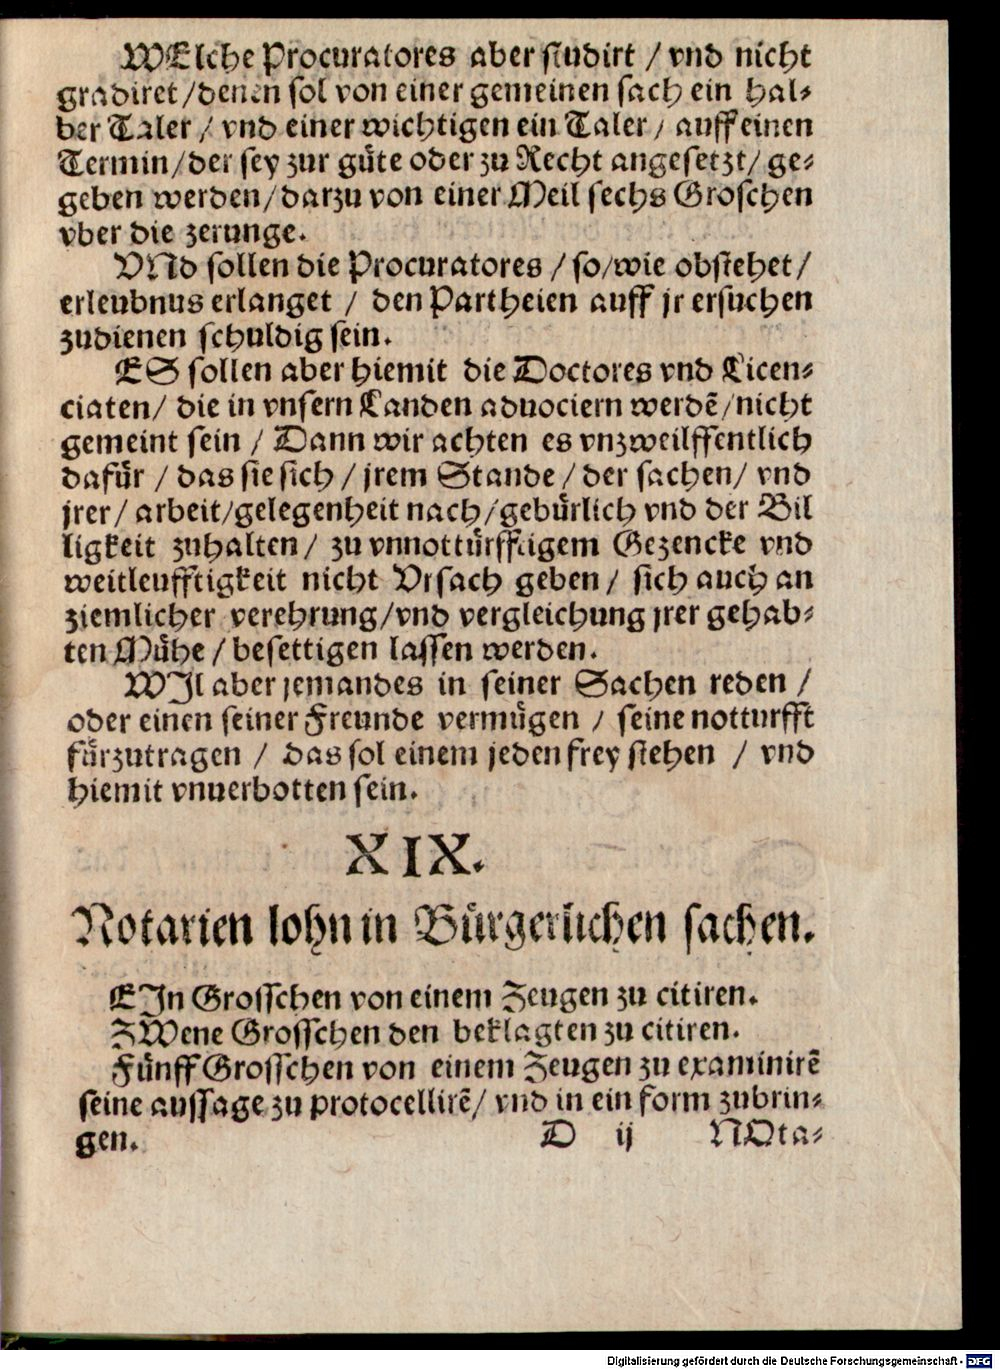 WElche Procuratores aber studirt / vnd nicht
gradiret/denen sol von einer gemeinen sach ein hal⸗
ber Taler / vnd einer wichtigen ein Taler / auff einen
Termin/der sey zur güte oder zu Recht angesetzt/ ge⸗
geben werden/darzu von einer Meil sechs Groschen
vber die zerunge.
VNd sollen die Procuratores / so/wie obstehet/
erleubnus erlanget / den Partheien auff jr ersuchen
zudienen schuldig sein.
ES sollen aber hiemit die Doctores vnd Licen⸗
ciaten/ die in vnsern Landen aduociern werdē/nicht
gemeint sein / Dann wir achten es vnzweilffentlich
dafür / das sie sich / jrem Stande / der sachen/ vnd
jrer/ arbeit/gelegenheit nach/gebürlich vnd der Bil
ligkeit zuhalten/ zu vnnottürfftigem Gezencke vnd
weitleufftigkeit nicht Vrsach geben / sich auch an
ziemlicher verehrung/vnd vergleichung jrer gehab⸗
ten Mühe / besettigen lassen werden.
WJl aber jemandes in seiner Sachen reden /
oder einen seiner Freunde vermügen / seine notturfft
fürzutragen / das sol einem jeden frey stehen / vnd
hiemit vnuerbotten sein.
XIX.
Notarien lohn in Bürgerlichen sachen.
EJn Grosschen von einem Zeugen zu citiren.
ZWene Grosschen den beklagten zu citiren.
Fünff Grosschen von einem Zeugen zu examinirē
seine aussage zu protocellirē/ vnd in ein form zubrin⸗
gen. D ij NOta⸗
Digitalisierung gefördert durch die Deutsche Forschungsgemeinschaft - DFG